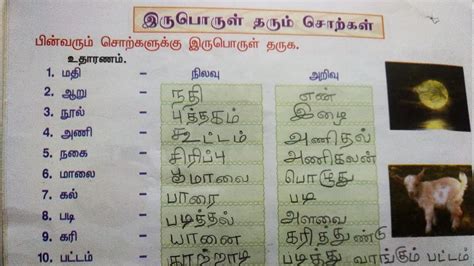 இருபொருள் தரும் சொற்கள்
பின்வரும் சொற்களுக்கு இருபொருள் தருக.
உதாரணம்.
1. மதி - நிலவு அறிவு
2. ஆறு - நதி என்
3. நூல் - புத்தகம் இழை
4. அணி - கூட்டம் அணிதல்
5. நகை - சிரிப்பு அணிகலன்
6. மாலை - பூமாலை பொழுது
7. கல் - பாறை படி
8. படி - படித்தல் அளவை
9. கரி - யானை கரித்துண்டு
10. பட்டம் - காற்றாடி படித்து வாங்கும் பட்டம்